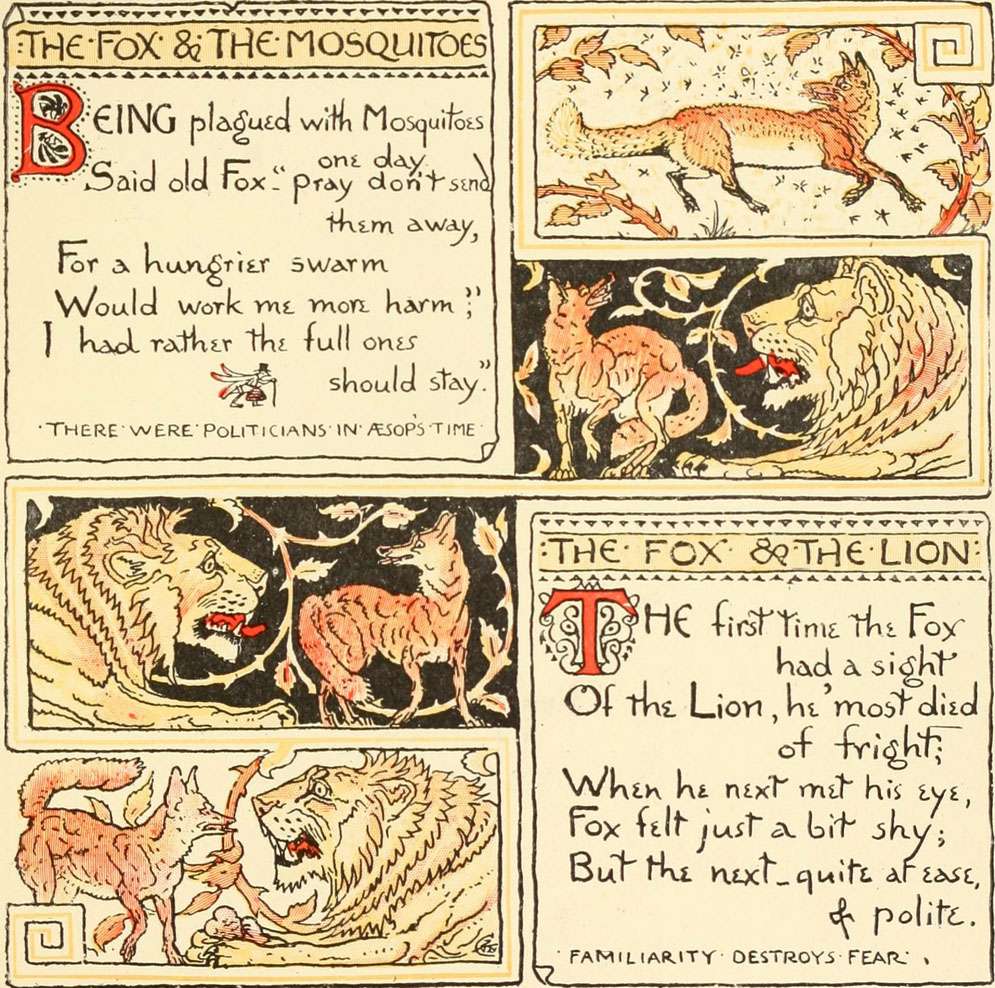 THE·FOX·&·THE·MOSQUITOES
BEING plagued with Mosquitoes
one day,
Said old Fox:“ pray don't send
them away,
For a hungrier swarm
Would work me more harm ;”
I had rather the full ones
should stay.”
·THERE·WERE·POLITICIANS·IN·ÆSOP'S·TIME·
THE·FOX·&·THE·LION
THE first time the Fox
had a sight
Of the Lion, he 'most died
of fright;
When he next met his eye,
Fox felt just a bit shy;
But the next_quite at ease,
& polite.
·FAMILIARITY·DESTROYS·FEAR·